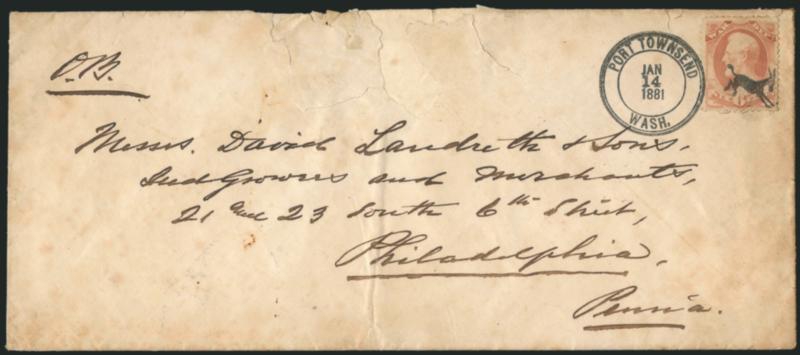 O.B.
PORT TOWNSEND
JAN
14
1881
WASH.
WAR DEP
Messrs. David Landreth & Sons,
Seed Growers and Merchants,
21 and 23 South 6th Street,
Philadelphia,
Penn'a.